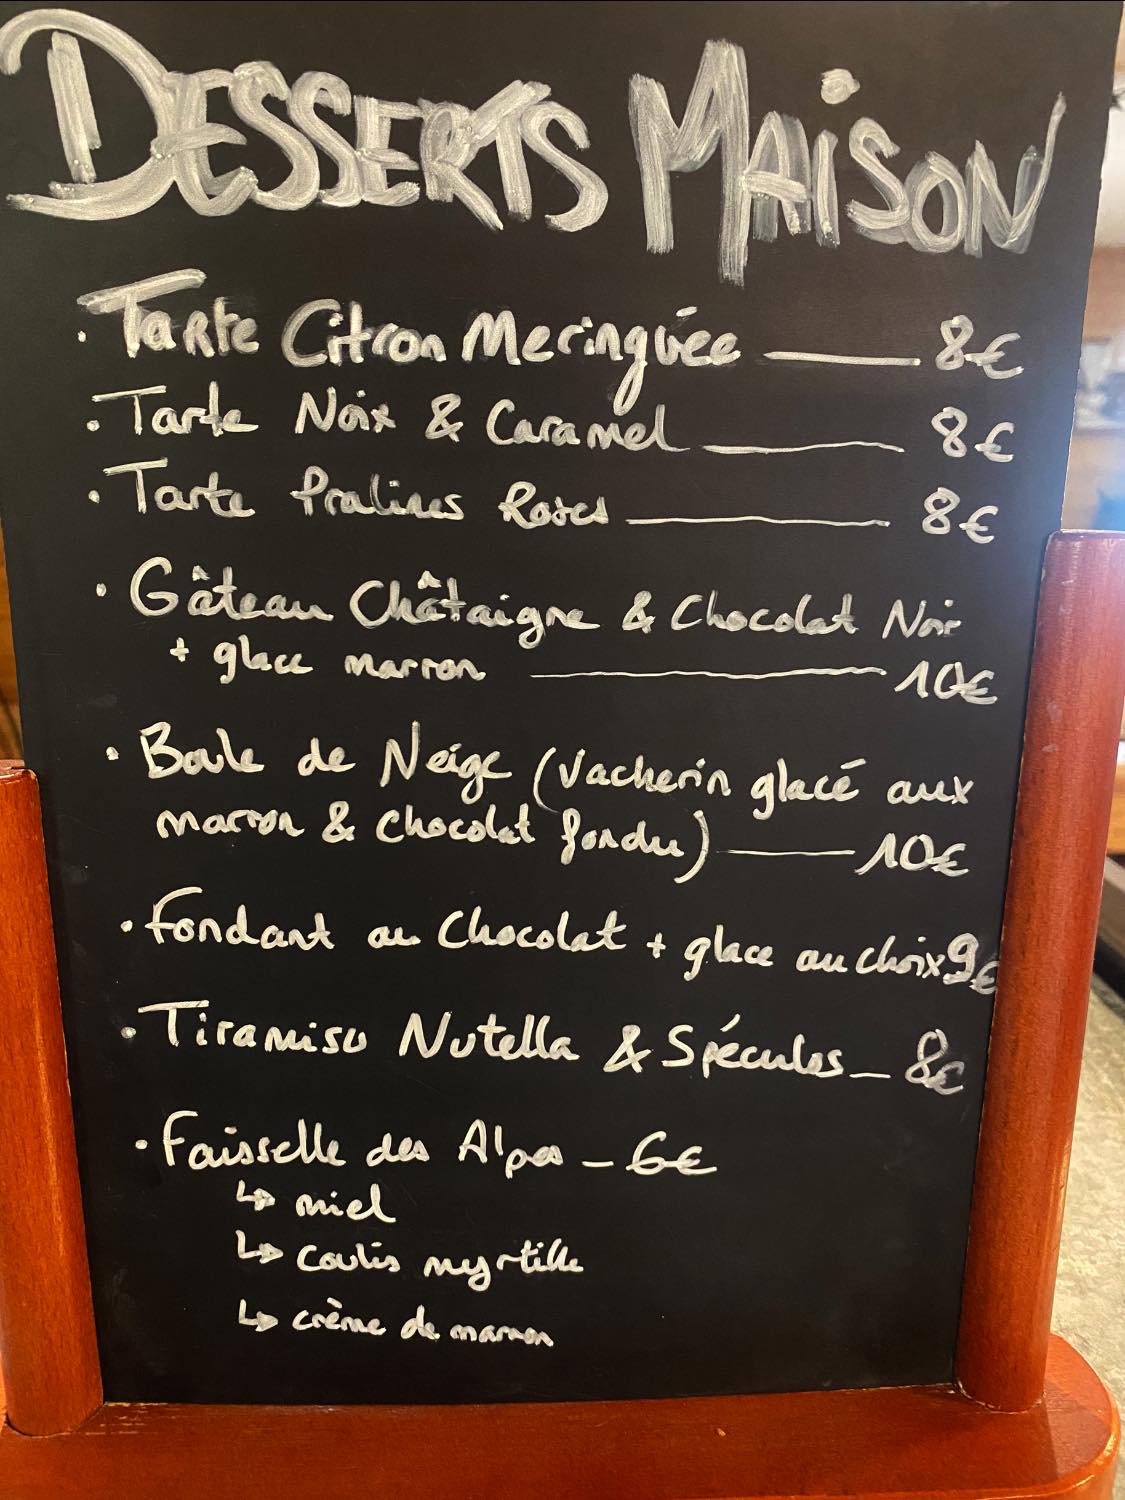 DESSERTS MAISON
· Tarte Citron Meringuée — 8€
· Tarte Noix & Caramel — 8€
· Tarte Pralines Roses — 8€
· Gâteau Châtaigne & Chocolat Noir
+ glace marron — 10€
· Boule de Neige (Vacherin glacé aux
marron & chocolat fondu) — 10€
· Fondant au Chocolat + glace au choix 9€
· Tiramisu Nutella & Spéculos — 8€
· Faisselle des Alpes — 6€
↳ miel
↳ coulis myrtille
↳ crème de marron